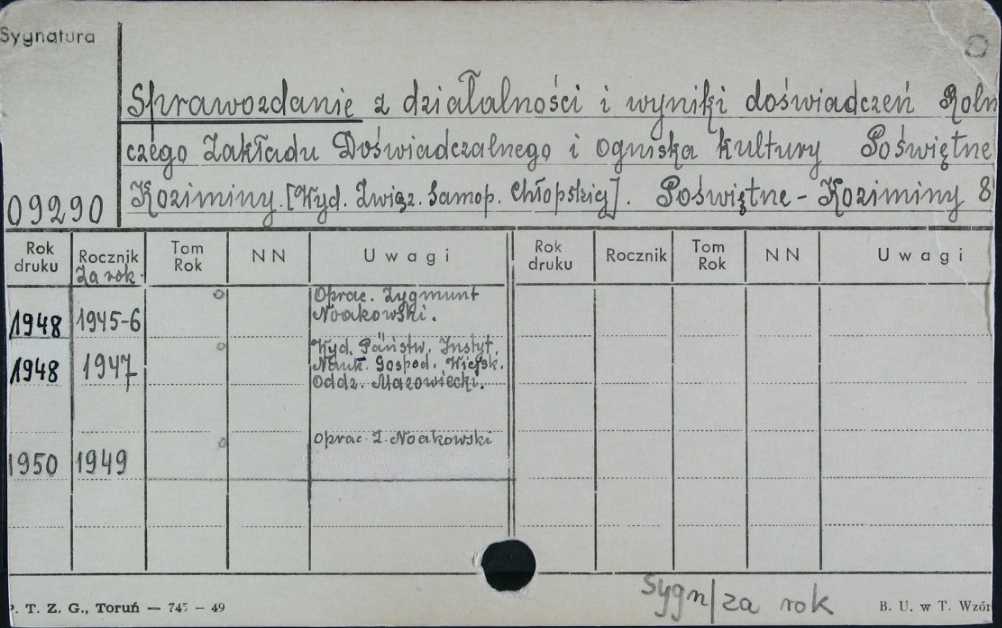 Sygnatura
Sprawozdanie z działalności i wyniki doświadczeń Roln
czego Zakładu Doświadczalnego i ogniska kultury Poświętne
09290 Koziminy. [Wyd. Związ. Samop. Chłopskiej]. Poświętne - Koziminy 8
Rok druku Rocznik Tom Rok NN Uwagi Rok druku Rocznik Tom Rok NN Uwagi
Za rok.
Oprac. Zygmunt
1948 1945-6 Noakowski.
Wyd. Państw. Instyt.
1948 1947 Nauk. Gospod. Wiejsk.
Oddz. Mazowiecki.
Oprac. Z. Noakowski
1950 1949
Sygn/za rok
P. T. Z. G., Toruń — 745 — 49 B. U. w T. Wzór